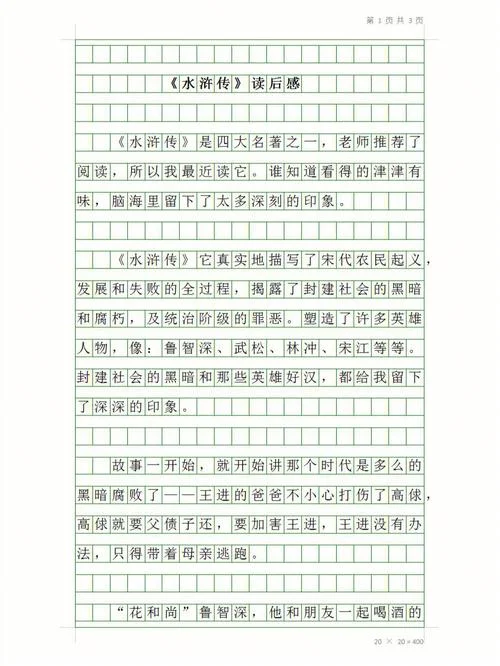 第 1 页 共 3 页
《水浒传》读后感
《水浒传》是四大名著之一，老师推荐了
阅读，所以我最近读它。谁知道看得的津津有
味，脑海里留下了太多深刻的印象。
《水浒传》它真实地描写了宋代农民起义，
发展和失败的全过程，揭露了封建社会的黑暗
和腐朽，及统治阶级的罪恶。塑造了许多英雄
人物，像：鲁智深、武松、林冲、宋江等等。
封建社会的黑暗和那些英雄好汉，都给我留下
了深深的印象。
故事一开始，就开始讲那个时代是多么的
黑暗腐败了——王进的爸爸不小心打伤了高俅，
高俅就要父债子还，要加害王进，王进没有办
法，只得带着母亲逃跑。
“花和尚”鲁智深，他和朋友一起喝酒的
20 × 20 = 400